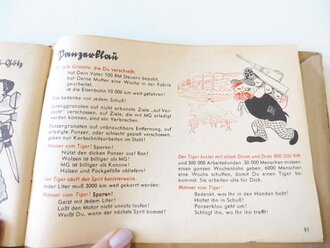 Panzerklau
Jede Granate, die Du verschießt,
hat Dein Vater 100 RM Steuern bezahlt,
hat Deine Mutter eine Woche in der Fabrik
ist die Eisenbahn 10 000 km weit gefahren!
Das bedenke vor jedem Schuß!
Sprenggranaten auf nicht erkannte Ziele
Ziele, die mit MG erledigt
werden können, sind ein Verbrechen.
Panzergranaten auf unbrauchbare Entfernung, auf
erledigte Panzer, oder schlecht gezielt verschossen,
geben mal Kerbschnitzarbeiten im Stahl!
Männer vom Tiger! Sparen!
Spart den dicken Panzer aus! Ran!
Walzen ist billiger als MG!
MG ist billiger als Kanone!
Hülsen und Packgefäße abliefern!
Der Tiger säuft den Sprit kanisterweise.
Jeden Liter muß 3000 km weit gekarrt werden.
Männer vom Tiger! Sparen!
Geizt mit jedem Liter!
Laßt den Motor nicht unnütz laufen!
Weißt Du, wann der nächste Sprit kommt?
Der Tiger kostet mit allem Drum und Dran 800 000 RM
und 300 000 Arbeitsstunden. 30 000 Menschen müssen
einen ganzen Wochenlohn geben, 6000 Menschen
eine Woche schuften, damit Du einen Tiger be-
kommst. Sie arbeiten alle für Dich.
Männer vom Tiger!
Bedenkt, was Ihr in den Händen habt!
Haltet ihn in Schuß!
Panzerklau geht um!
Schlagt ihn, wo Ihr ihn trefft!
91